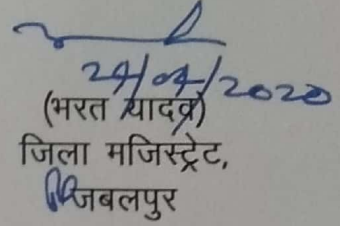 24/04/2020
(भरत यादव)
जिला मजिस्ट्रेट,
जबलपुर